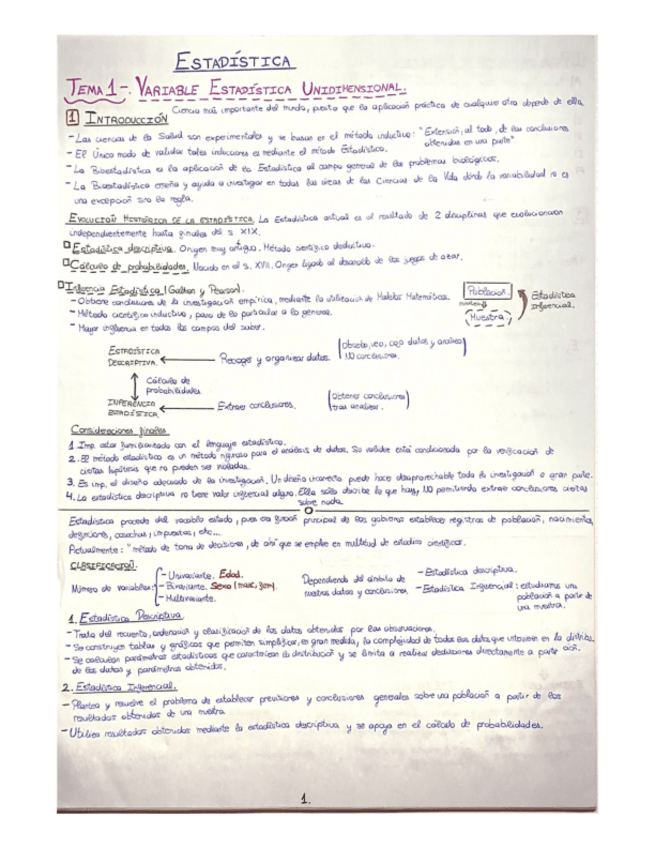 ESTADÍSTICA
TEMA 1-. VARIABLE ESTADÍSTICA UNIDIMENSIONAL.
Ciencia más importante del mundo, puesto que la aplicación práctica de cualquier otra depende de ella.
1 INTRODUCCIÓN
- Las ciencias de la Salud son experimentales y se basan en el método inductivo: "Extensión, al todo, de las conclusiones
obtenidas en una parte"
- El Único modo de validar tales inducciones es mediante el método Estadístico.
- La Bioestadística es la aplicación de la Estadística al campo general de los problemas biológicos.
- La Bioestadística enseña y ayuda a investigar en todas las áreas de las Ciencias de la Vida donde la variabilidad no es
una excepción sino la regla.
EVOLUCIÓN HISTÓRICA DE LA ESTADÍSTICA. La Estadística actual es el resultado de 2 disciplinas que evolucionaron
independientemente hasta finales del s. XIX.
Estadística descriptiva. Origen muy antiguo. Método científico deductivo.
Cálculo de probabilidades. Nacido en el s. XVII. Origen ligado al desarrollo de los juegos de azar.
Inferencia Estadística (Galton y Pearson).
- Obtiene conclusiones de la investigación empírica, mediante la utilización de Modelos Matemáticos.
- Método científico inductivo, pasa de lo particular a lo general.
- Mayor influencia en todos los campos del saber.
Población.
Muestra
Estadística
Inferencial.
ESTADÍSTICA
DESCRIPTIVA. ← Recoger y organizar datos. (Observo, veo, cojo datos y analizo
NO conclusiones.)
Cálculo de
probabilidades
INFERENCIA
ESTADÍSTICA. ← Extraer conclusiones. (Obtener conclusiones
tras analizar.)
Consideraciones finales
1. Imp. estar familiarizado con el lenguaje estadístico.
2. El método estadístico es un método riguroso para el análisis de datos. Su validez está condicionada por la verificación de
ciertas hipótesis que no pueden ser violadas.
3. Es imp. el diseño adecuado de la investigación. Un diseño incorrecto puede hacer desaprovechable toda la investigación o gran parte.
4. La estadística descriptiva no tiene valor inferencial alguno. Ella solo describe lo que hay, NO permitiendo extraer conclusiones ciertas
sobre nada.
Estadística procede del vocablo estado, pues era función principal de los gobiernos establecer registros de población, nacimientos,
defunciones, cosechas, impuestos, etc...
Actualmente: "método de toma de decisiones, de ahí que se emplee en multitud de estudios científicos.
CLASIFICACIÓN.
Número de variables:
- Univariante. Edad.
- Bivariante. Sexo (masc, fem).
- Multivariante.
Dependiendo del ámbito de
nuestros datos y conclusiones.
- Estadística descriptiva.
- Estadística Inferencial: estudiamos una
población a partir de
una muestra.
1. Estadística Descriptiva
- Trata del recuento, ordenación y clasificación de los datos obtenidos por las observaciones.
- Se construyen tablas y gráficos que permiten simplificar, en gran medida, la complejidad de todos los datos que intervienen en la distribu
ción.
- Se calculan parámetros estadísticos que caracterizan la distribución y se limita a realizar deducciones directamente a partir
de los datos y parámetros obtenidos.
2. Estadística Inferencial.
- Plantea y resuelve el problema de establecer previsiones y conclusiones generales sobre una población a partir de los
resultados obtenidos de una muestra.
- Utiliza resultados obtenidos mediante la estadística descriptiva y se apoya en el cálculo de probabilidades.
1.